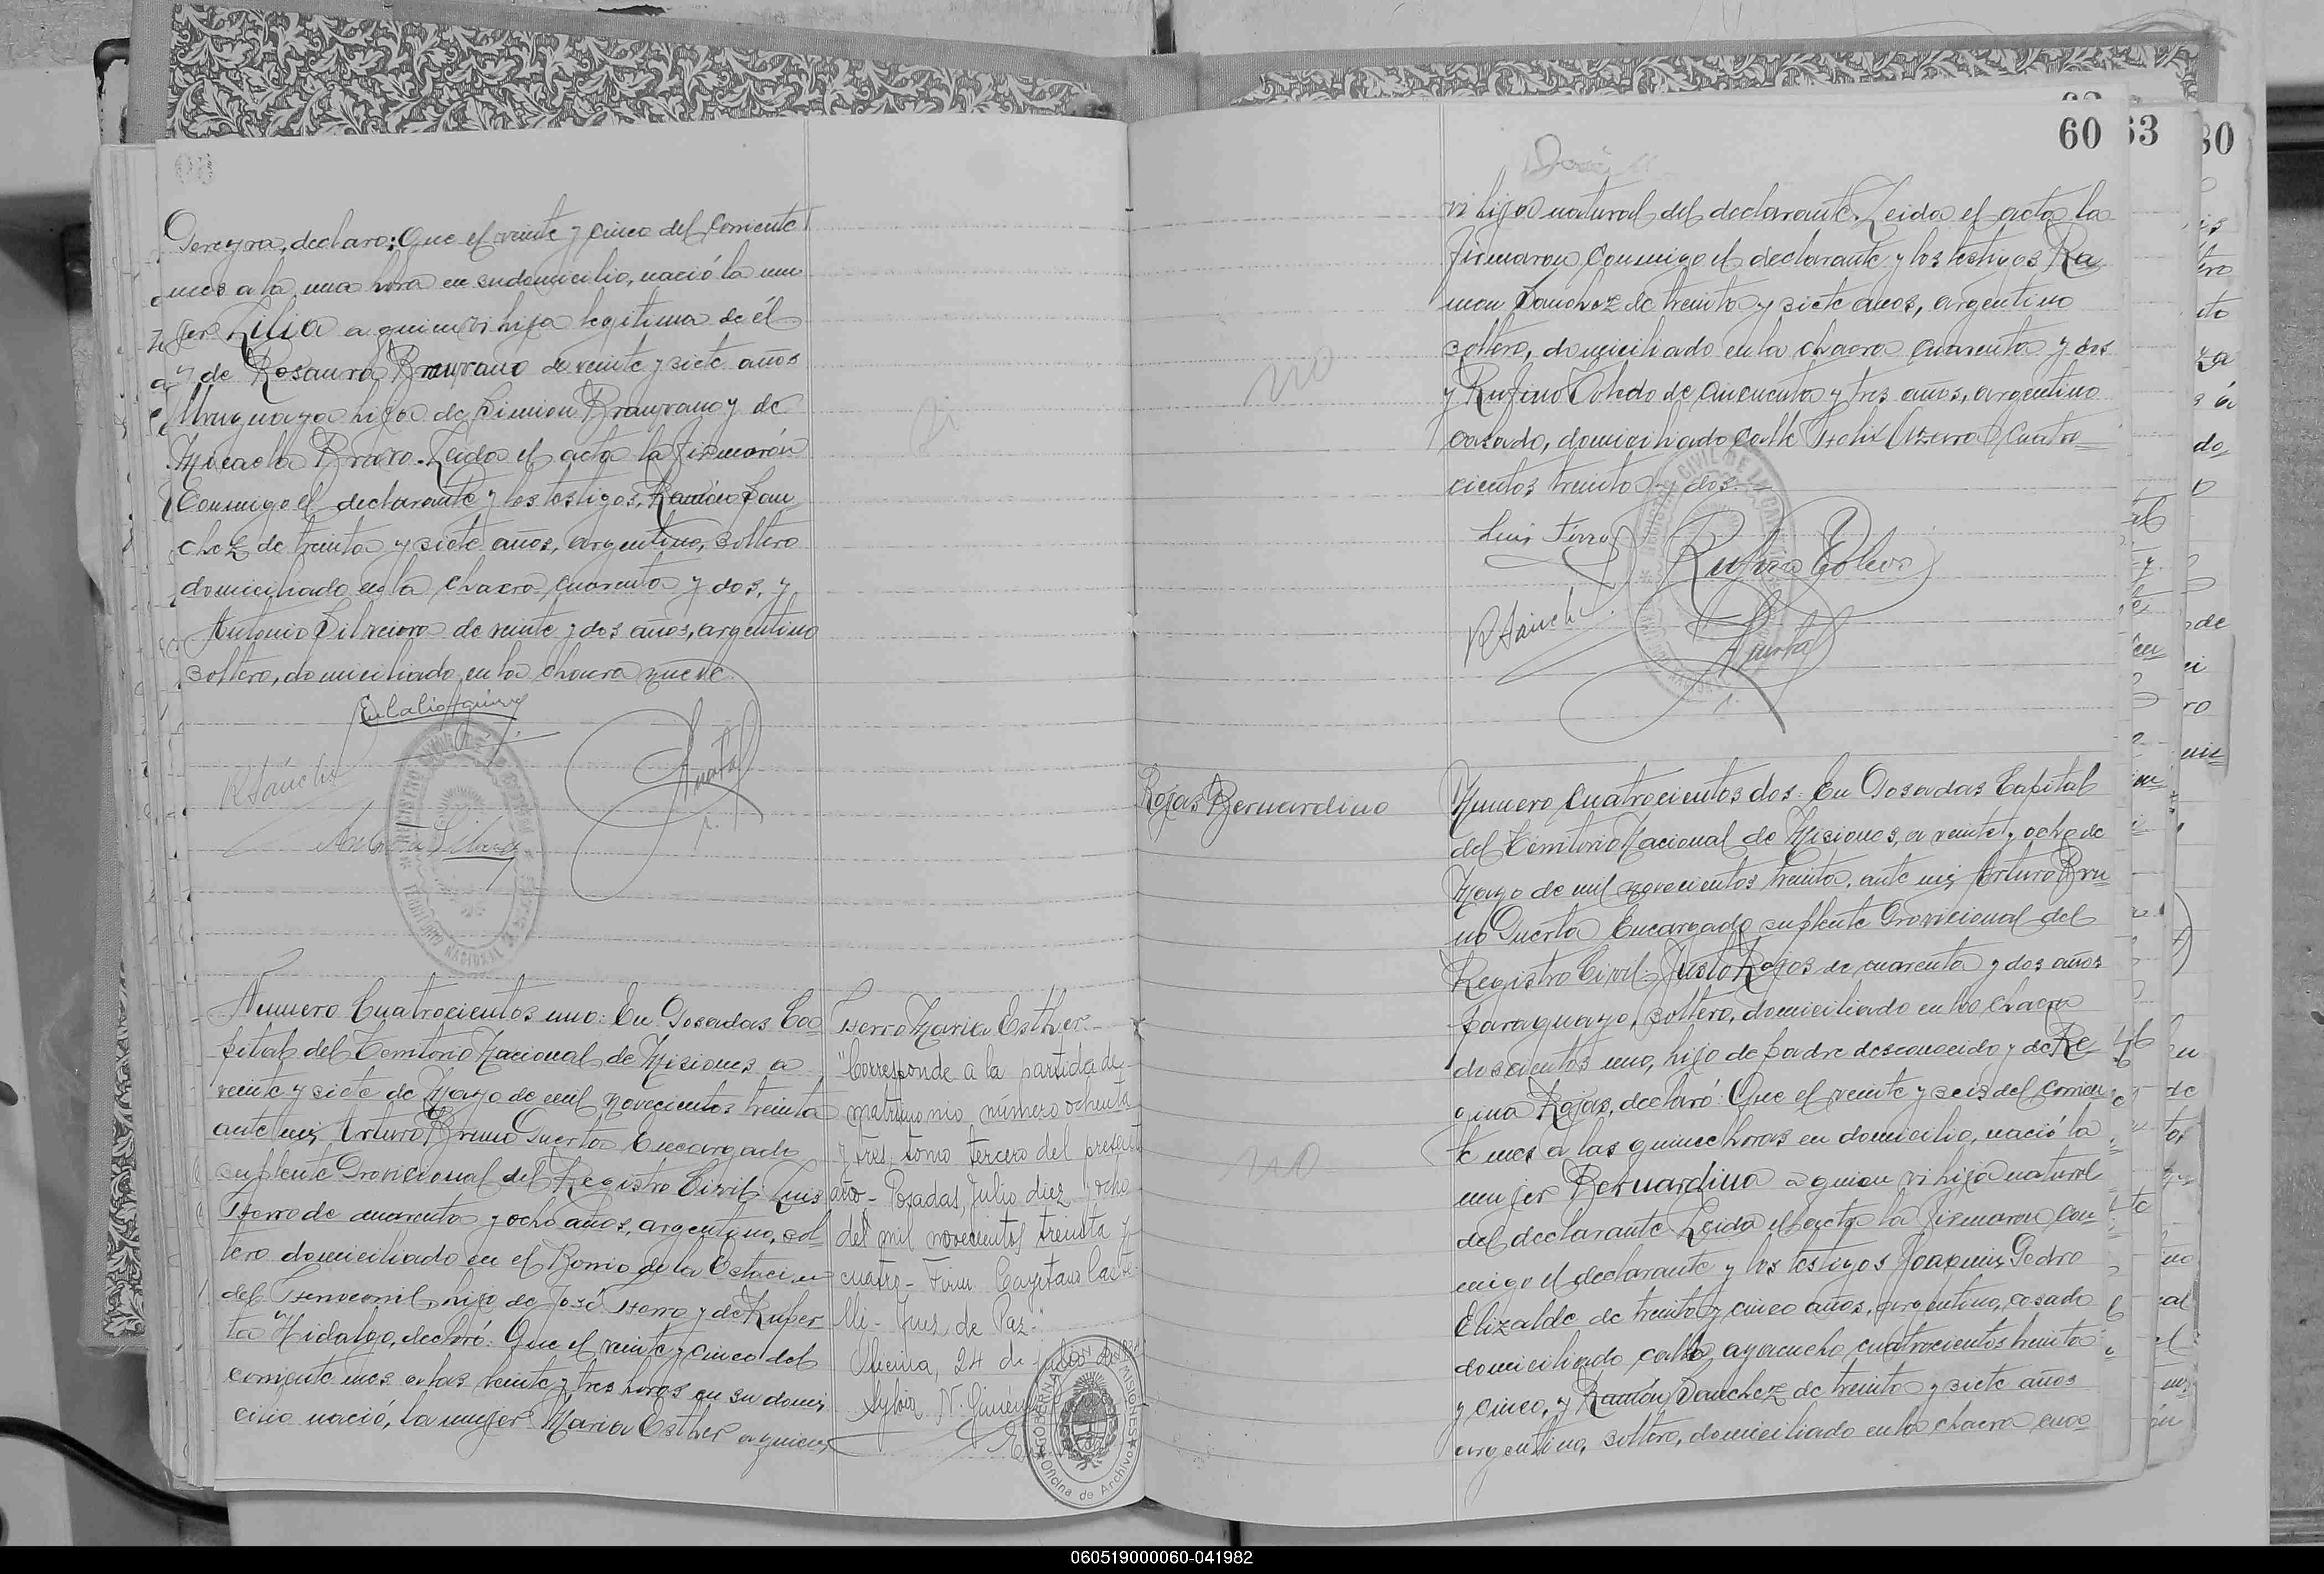 Pereyra, declaro: Que el veinte y cinco del corriente
mes a la una hora en su domicilio, nació la mu
ger Lilia a quien vi hija legitima de él
y de Rosaura de veinte y siete años
Uruguaya hija de Simion y de
Micaela Bravo. Leida el acta la firmarón
Conmigo el declarante y los testigos, Ramón San
chez de treinta y siete años, argentino, soltero
domiciliado en la chacra cuarenta y dos, y
Antonio Silveira de veinte y dos años, argentino
soltero, domiciliado en la chacra nueve.
Eulalio Aguirre
R Sánchez
Si
Numero Cuatrocientos uno: En Posadas Ca
pital del Territorio Nacional de Misiones a
veinte y siete de Mayo de mil novecientos treinta
ante mi, Arturo Bruno Puerta Encargado
suplente Provicional del Registro Civil Luis
Fierro de cuarenta y ocho años, argentino, sol
tero domiciliado en el Barrio de la Estacion
del Ferrocarril, hijo de José Fierro y de Ruper
ta Hidalgo, declaró: Que el veinte y cinco del
corriente mes a las veinte y tres horas en su domi
cilio nació, la mujer Maria Esther a quien
Fierro Maria Esther.
"Corresponde a la partida de
matrimonio número ochenta
y tres, tomo tercero del presente
año - Posadas, Julio diez y ocho
del mil novecientos treinta y
cuatro - Firm. Cayetano Caste
lli - Juez de Paz."
Oficina, 24 de Julio de
Sylvia N. Giménez
Oficina de Archivo
60
63
80
vi hija natural del declarante. Leida el acta la
firmaron Conmigo el declarante y los testigos Ra
mon Sanchez de treinta y siete años, argentino
soltero, domiciliado en la chacra cuarenta y dos
y Rufino Toledo de cincuenta y tres años, argentino
casado, domiciliado calle Felix Azara Cuatro
cientos treinta y dos.
Luis Fierro
R Sánchez
no
Rojas Bernardino
Numero Cuatrocientos dos: En Posadas Capital
del Territorio Nacional de Misiones, a veinte y ocho de
Mayo de mil novecientos treinta, ante mi, Arturo Bru
no Puerta Encargado suplente Provicional del
Registro Civil: Justo Rojas de cuarenta y dos años
paraguayo, soltero, domiciliado en la chacra
doscientos uno, hijo de padre desconocido y de Re
gina Rojas, declaró: Que el veinte y seis del corrien
te mes a las quince horas en domicilio, nació la
mujer Bernardina a quien vi hija natural
del declarante Leida el acta la firmaron con
migo el declarante y los testigos Joaquin Pedro
Elizalde de treinta y cinco años, argentino, casado
domiciliado calle ayacucho cuatrocientos treinta
y cinco, y Ramón Sanchez de treinta y siete años
argentino, soltero, domiciliado en la chacra cua
no
060519000060-041982